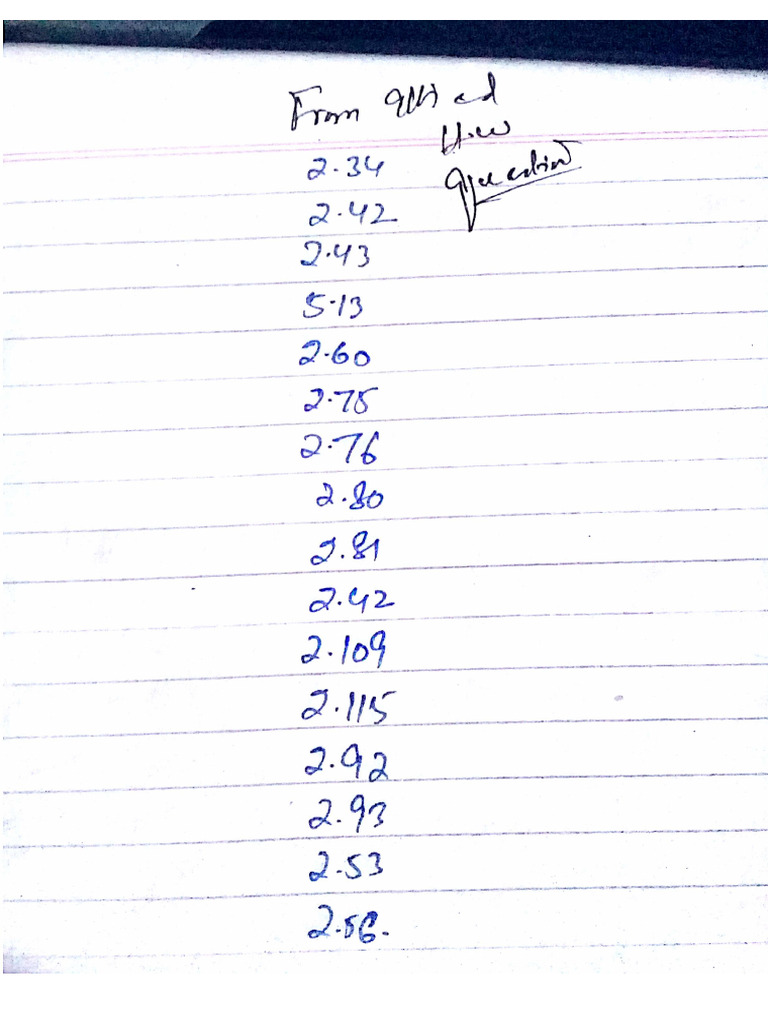 From
H.W
Question
2.34
2.42
2.43
5.13
2.60
2.75
2.76
2.80
2.81
2.42
2.109
2.115
2.92
2.93
2.53
2.56.